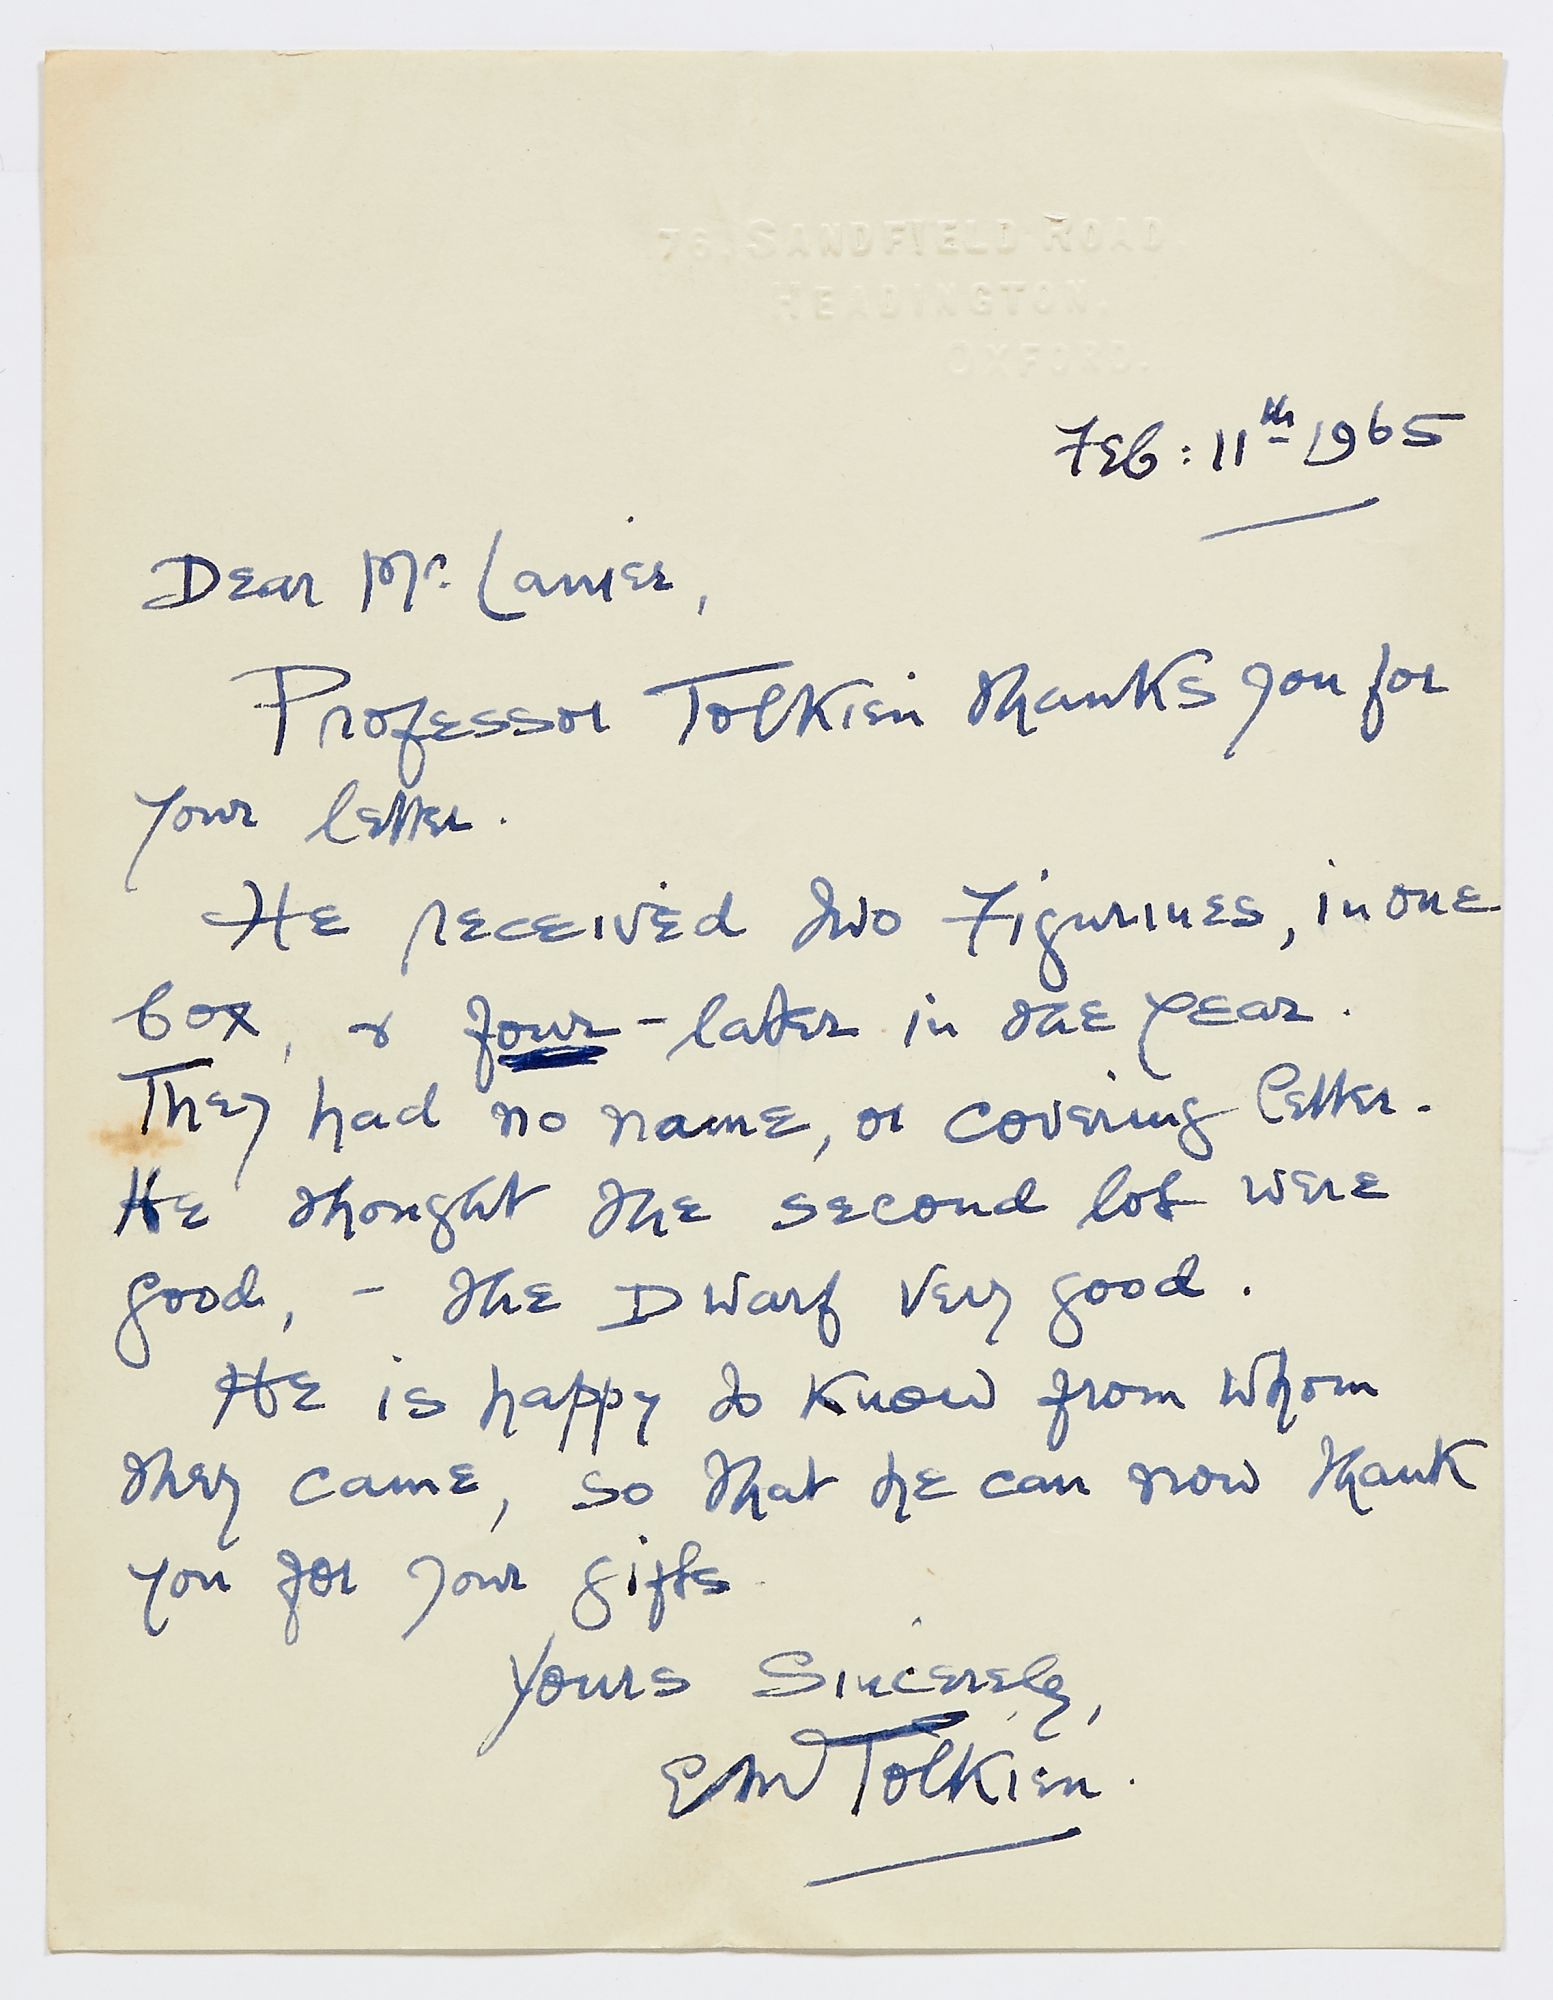 76, SANDFIELD ROAD
HEADINGTON.
OXFORD.
Feb: 11th 1965
Dear Mr. Lanier,
Professor Tolkien thanks you for
your letter.
He received two Figurines, in one
box, & four - later in the year.
They had no name, or covering letter.
He thought the second lot were
good, - the Dwarf very good.
He is happy to know from whom
they came, so that he can now thank
you for your gifts
Yours Sincerely,
EM Tolkien.